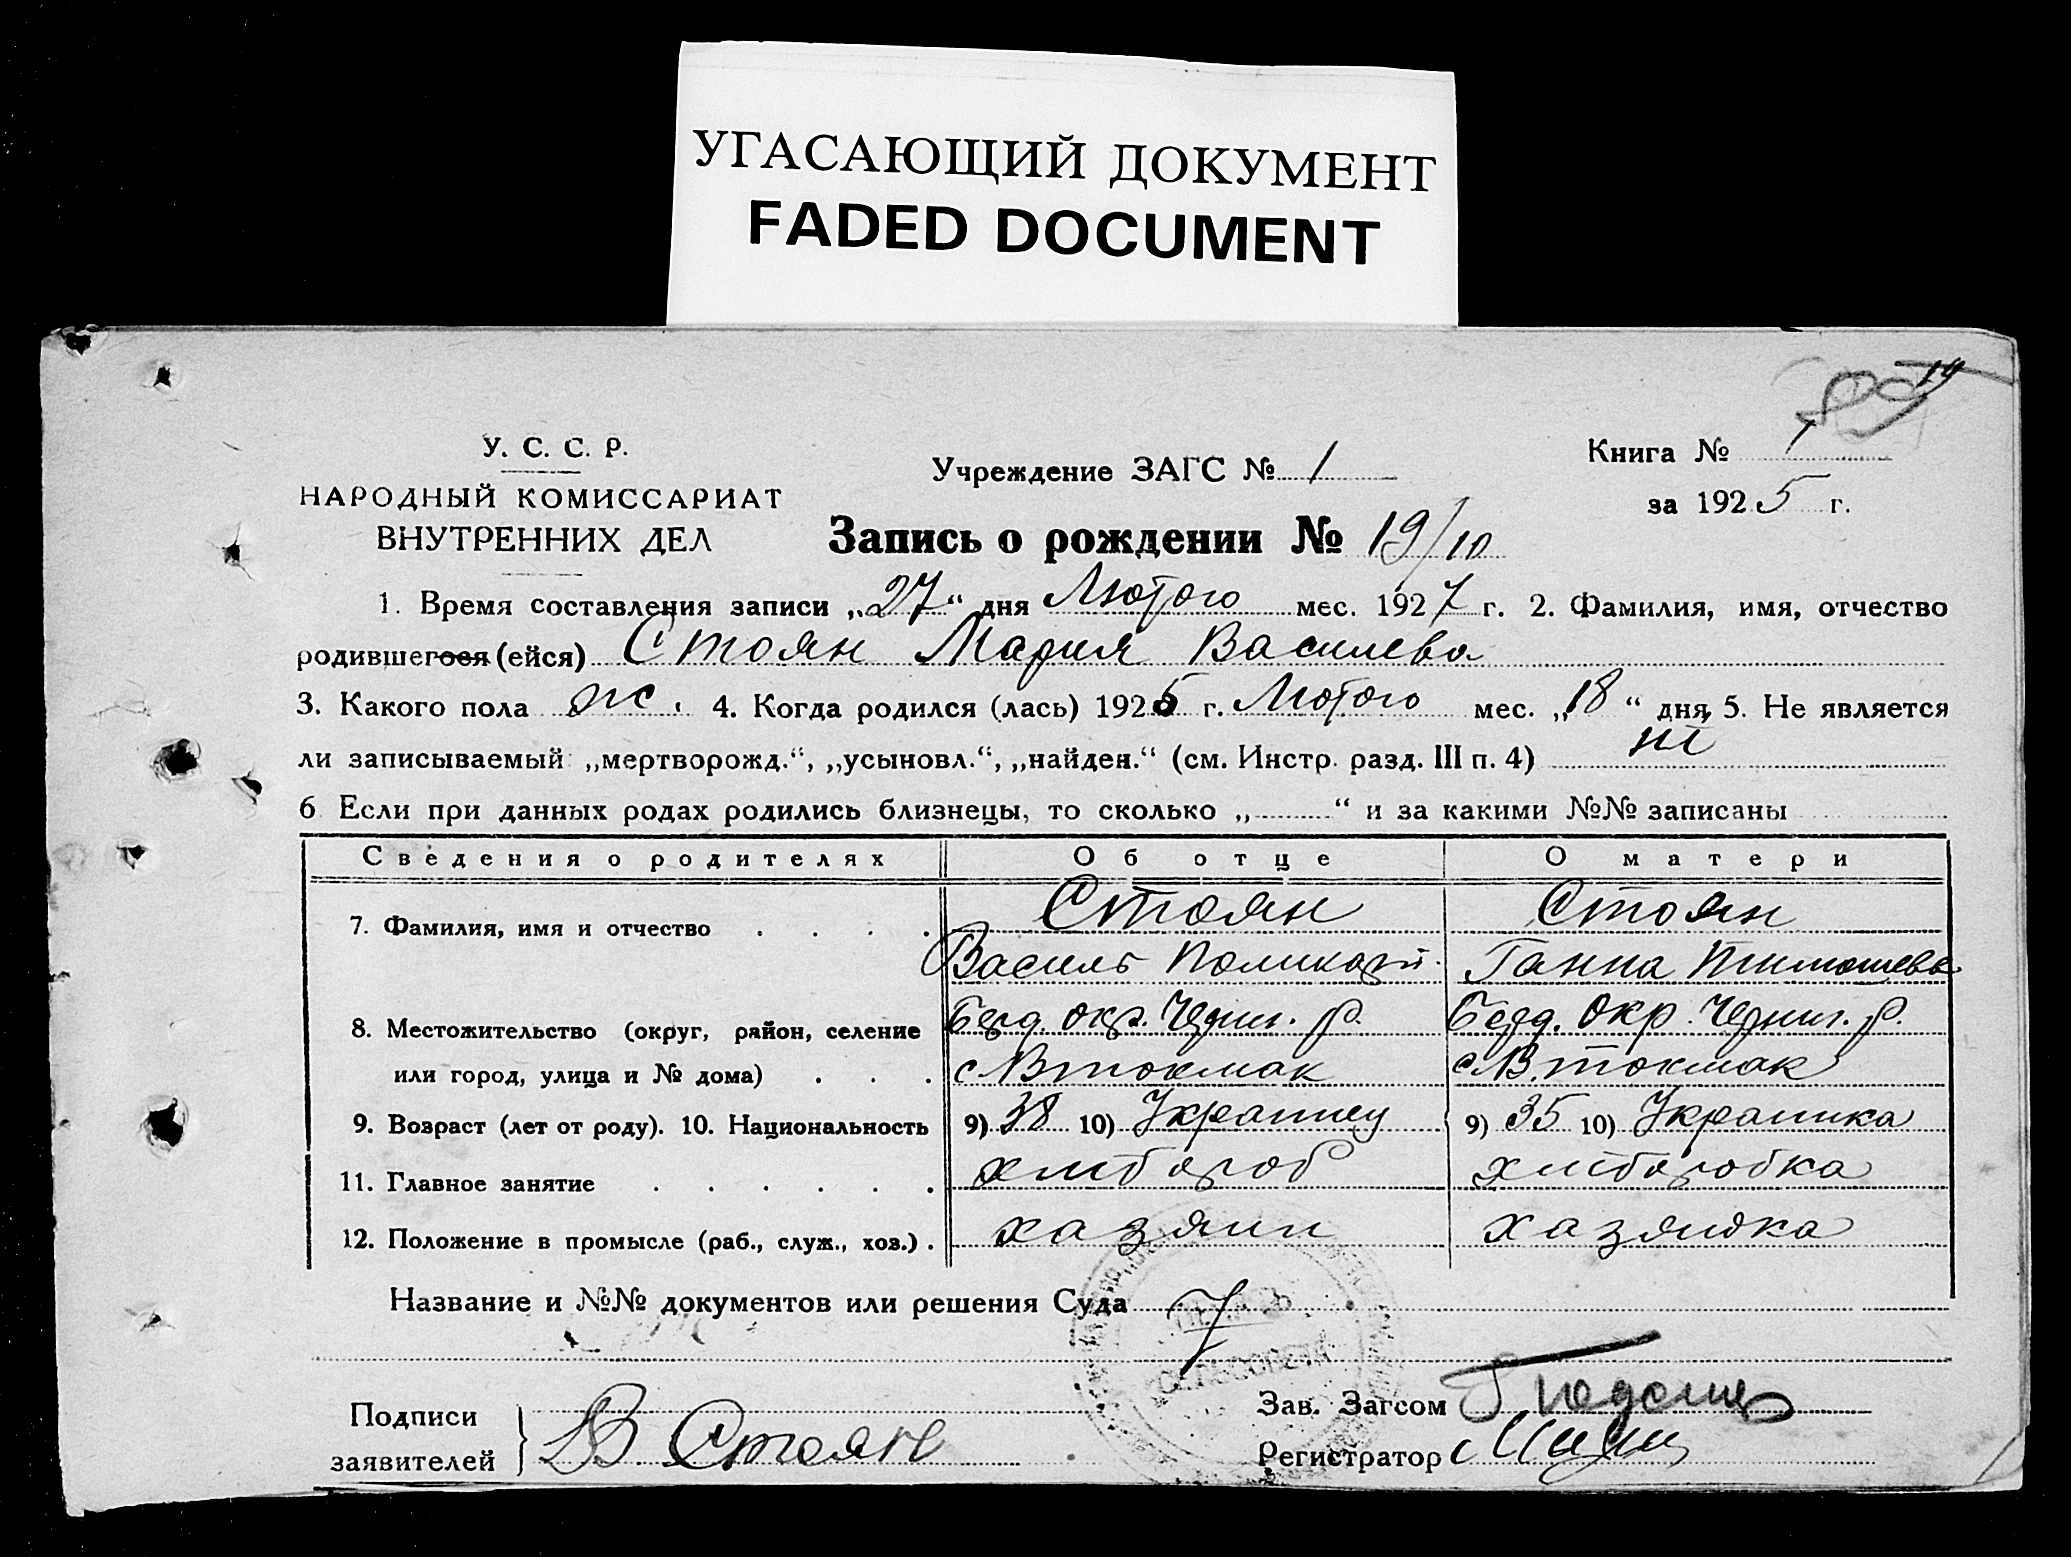 УГАСАЮЩИЙ ДОКУМЕНТ
FADED DOCUMENT
89 19
У. С. С. Р.
НАРОДНЫЙ КОМИССАРИАТ
ВНУТРЕННИХ ДЕЛ
Учреждение ЗАГС № 1
Книга № 1
за 1925 г.
Запись о рождении № 19/10
1. Время составления записи „27“ дня Лютого мес. 1927 г. 2. Фамилия, имя, отчество
родившегося (ейся) Стоян Мария Василева
3. Какого пола ж. 4. Когда родился (лась) 1925 г. Лютого мес. „18“ дня 5. Не является
ли записываемый „мертворожд.“, „усыновл.“, „найден.“ (см. Инстр. разд. III п. 4) ні
6 Если при данных родах родились близнецы, то сколько „ “ и за какими №№ записаны
Сведения о родителях Об отце О матери
7. Фамилия, имя и отчество Стоян Стоян
Василь Поликарп. Ганна Тимошева
8. Местожительство (округ, район, селение Берд. окр. Черниг. р. Берд. Окр. Черниг. р.
или город, улица и № дома) с В токмак с В. токмак
9. Возраст (лет от роду). 10. Национальность 9) 38 10) Украинец 9) 35 10) Украинка
11. Главное занятие хлібороб хліборобка
12. Положение в промысле (раб., служ., хоз.) хазяин хазяйка
Название и №№ документов или решения Суда
СЕЛЬСОВЕТА
Подписи
заявителей } В Стоян
Зав. Загсом
Регистратор